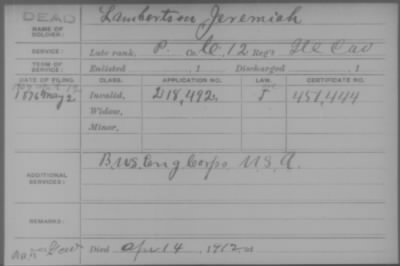 DEAD
NAME OF SOLDIER: Lambertson Jeremiah
SERVICE: Late rank, P. Co. G, 12 Reg't Ill Cav
TERM OF SERVICE: Enlisted , 1 Discharged , 1
DATE OF FILING. CLASS. APPLICATION NO. LAW. CERTIFICATE NO.
1876 May 2 Invalid, 218,492 451,444
Widow,
Minor,
ADDITIONAL SERVICES: Corps U.S.A.
REMARKS:
Died Apr 14, 1912, at